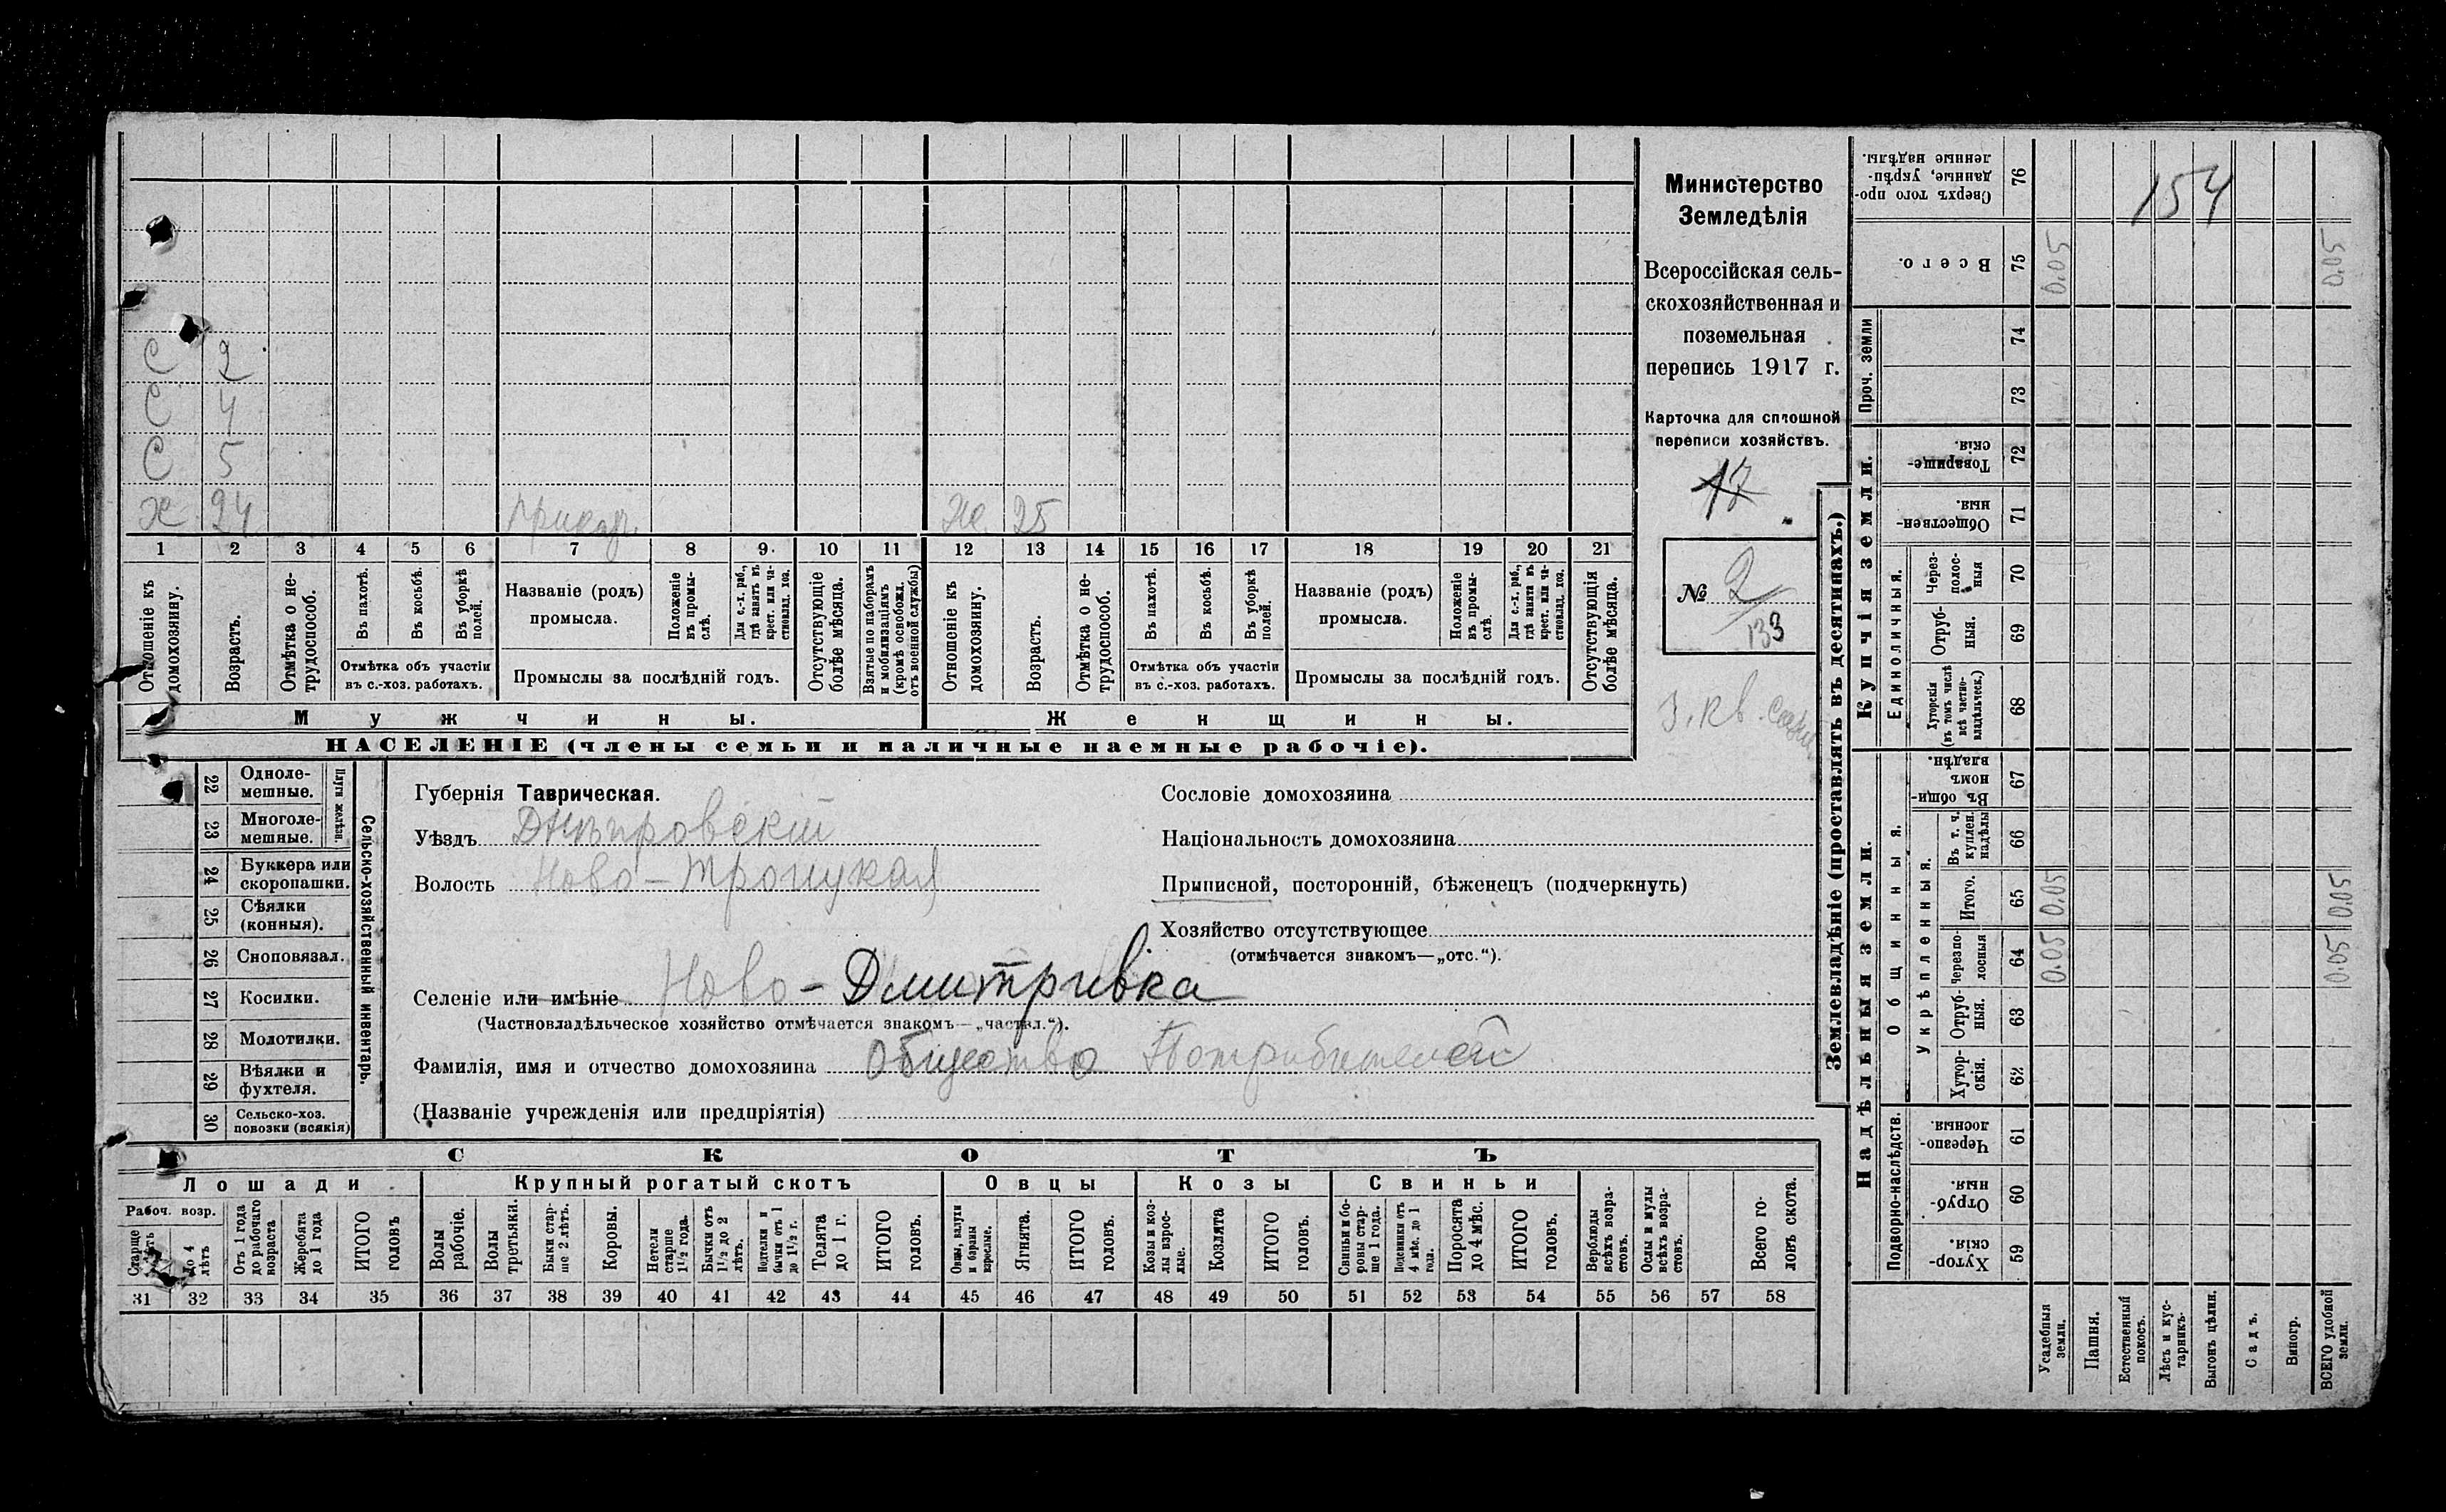 С 2
С 4
С 5
Х 24 прикащ. Ж 25
1 2 3 4 5 6 7 8 9 10 11 12 13 14 15 16 17 18 19 20 21
Отношеніе къ домохозяину.
Возрастъ.
Отмѣтка о нетрудоспособ.
Въ пахотѣ.
Въ косьбѣ.
Въ уборкѣ полей.
Отмѣтка объ участіи
въ с.-хоз. работахъ.
Названіе (родъ)
промысла.
Положеніе въ промыслѣ.
Для с.-х. раб., гдѣ занятъ въ крест. или частновлад. хоз.
Промыслы за послѣдній годъ.
Отсутствующіе болѣе мѣсяца.
Взятые по наборамъ и мобилизаціямъ (кромѣ освобожд. отъ военной службы)
Отношеніе къ домохозяину.
Возрастъ.
Отмѣтка о нетрудоспособ.
Въ пахотѣ.
Въ косьбѣ.
Въ уборкѣ полей.
Отмѣтка объ участіи
въ с.-хоз. работахъ.
Названіе (родъ)
промысла.
Положеніе въ промыслѣ.
Для с.-х. раб., гдѣ занята въ крест. или частновлад. хоз.
Промыслы за послѣдній годъ.
Отсутствующія болѣе мѣсяца.
Мужчины. Женщины.
НАСЕЛЕНІЕ (члены семьи и наличные наемные рабочіе).
Министерство
Земледѣлія
Всероссійская сель-
скохозяйственная и
поземельная
перепись 1917 г.
Карточка для сплошной
переписи хозяйствъ.
17
№ 2
133
22 Одноле-
мешные.
23 Многоле-
мешные.
Плуги желѣзн.
24 Буккера или
скоропашки.
25 Сѣялки
(конныя).
26 Сноповязал.
27 Косилки.
28 Молотилки.
29 Вѣялки и
фухтеля.
30 Сельско-хоз.
повозки (всякія)
Сельско-хозяйственный инвентарь.
Губернія Таврическая.
Уѣздъ Днѣпровскій
Волость Ново-Троицкая
Селеніе или имѣніе Ново-Дмитривка
(Частновладѣльческое хозяйство отмѣчается знакомъ—„частвл.“).
Фамилія, имя и отчество домохозяина Общество Потрибителей
(Названіе учрежденія или предпріятія)
Сословіе домохозяина
Національность домохозяина
Приписной, посторонній, бѣженецъ (подчеркнуть)
Хозяйство отсутствующее
(отмѣчается знакомъ—„отс.“).
СКОТЪ
Лошади Крупный рогатый скотъ Овцы Козы Свиньи
Рабоч. возр.
Старше 4 лѣтъ
до 4 лѣтъ
Отъ 1 года до рабочаго возраста
Жеребята до 1 года
ИТОГО головъ
Волы рабочіе.
Волы третьяки.
Быки старше 2 лѣтъ.
Коровы.
Нетели старше 1½ года.
Бычки отъ 1½ до 2 лѣтъ.
Подтелки и бычки отъ 1 до 1½ г.
Телята до 1 г.
ИТОГО головъ.
Овцы, валухи и бараны взрослые.
Ягнята.
ИТОГО головъ.
Козы и козлы взрослые.
Козлята
ИТОГО головъ.
Свиньи и боровы старше 1 года.
Подсвинки отъ 4 мѣс. до 1 года.
Поросята до 4 мѣс.
ИТОГО головъ.
Верблюды всѣхъ возрастовъ.
Ослы и мулы всѣхъ возрастовъ.
Всего головъ скота.
31 32 33 34 35 36 37 38 39 40 41 42 43 44 45 46 47 48 49 50 51 52 53 54 55 56 57 58
Землевладѣніе (проставлять въ десятинахъ.)
Сверхъ того проданные, укрѣпленные надѣлы. 76 154
Всего. 75 0.05 0.05
Проч. земли 74
73
Купчія земли.
Товарищескія. 72
Общественныя. 71
Единоличныя.
Черезполосныя 70
Отрубныя. 69
Хуторскія (въ томъ числѣ всѣ частновладѣльческ.) 68
Надѣльныя земли.
Общинныя.
Въ общинномъ владѣн. 67
Укрѣпленныя.
Въ т. ч. куплен. надѣлы 66
Итого. 65 0.05 0.05
Черезполосныя 64 0.05 0.05
Отрубныя. 63
Хуторскія. 62
Подворно-наслѣдств.
Черезполосныя. 61
Отрубныя. 60
Хуторскія. 59
Усадебныя земли.
Пашня.
Естественный покосъ.
Лѣсъ и кустарникъ.
Выгонъ цѣлин.
Садъ.
Виногр.
ВСЕГО удобной земли.